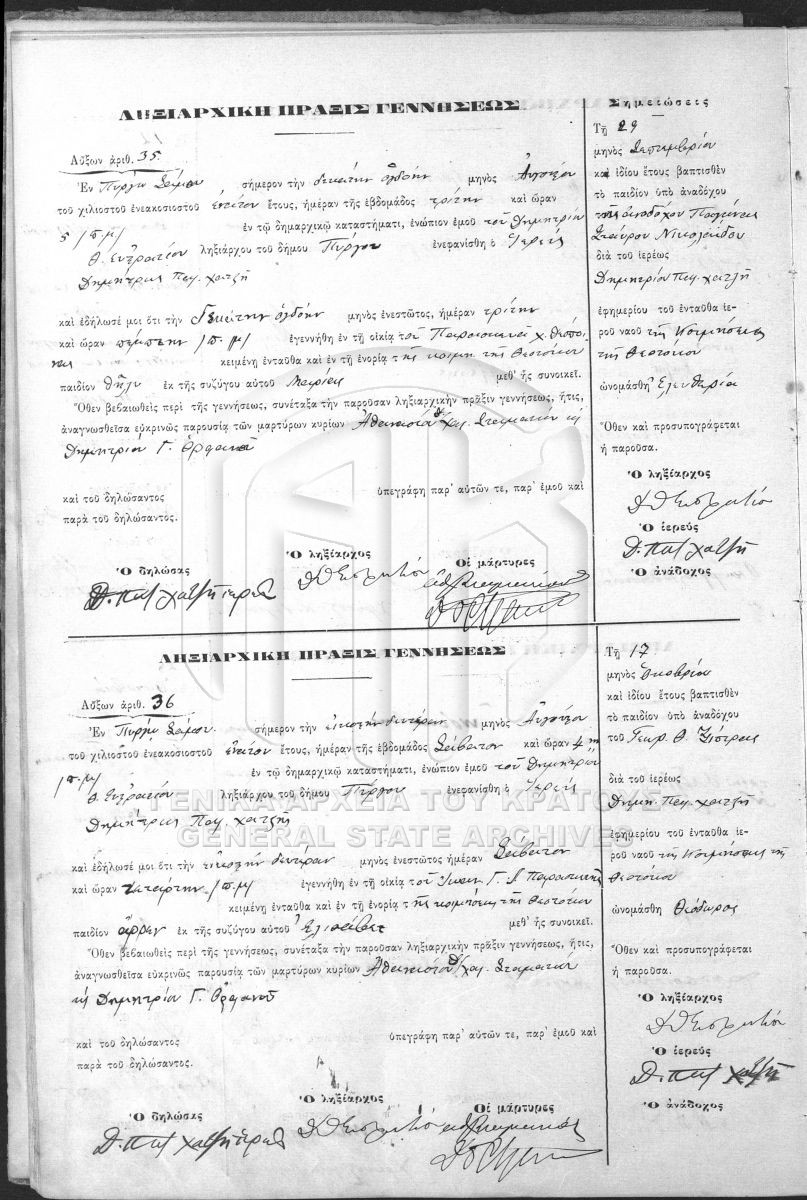 ΛΗΞΙΑΡΧΙΚΗ ΠΡΑΞΙΣ ΓΕΝΝΗΣΕΩΣ
Αὔξων ἀριθ. 35
Ἐν Πύργῳ Σάμου σήμερον τὴν δεκάτην ὀγδόην μηνὸς Αὐγούστου
τοῦ χιλιοστοῦ ἐνεακοσιοστοῦ ἐνάτου ἔτους, ἡμέραν τῆς ἑβδομάδος τρίτην καὶ ὥραν
5 /π.μ/ ἐν τῷ δημαρχικῷ καταστήματι, ἐνώπιον ἐμοῦ τοῦ Δημητρίου
Θ. Εὐστρατίου ληξιάρχου τοῦ δήμου Πύργου ἐνεφανίσθη ὁ Ἱερεὺς
Δημήτριος Παπ. χατζῆ
καὶ ἐδήλωσέ μοι ὅτι τὴν δεκάτην ὀγδόην μηνὸς ἐνεστῶτος, ἡμέραν τρίτην
καὶ ὥραν πέμπτην /π.μ/ ἐγεννήθη ἐν τῇ οἰκίᾳ τοῦ Παρασκευᾶ χ. Δεσποί
νης κειμένῃ ἐνταῦθα καὶ ἐν τῇ ἐνορίᾳ τῆς κοιμη. τῆς Θεοτόκου
παιδίον θῆλυ ἐκ τῆς συζύγου αὐτοῦ Μαρίας μεθ' ἧς συνοικεῖ.
Ὅθεν βεβαιωθεὶς περὶ τῆς γεννήσεως, συνέταξα τὴν παροῦσαν ληξιαρχικὴν πρᾶξιν γεννήσεως, ἥτις,
ἀναγνωσθεῖσα εὐκρινῶς παρουσίᾳ τῶν μαρτύρων κυρίων Ἀθανασίου χας. Σταματίου καὶ
Δημητρίου Γ. Ὀρφανοῦ
ὑπεγράφη παρ' αὐτῶν τε, παρ' ἐμοῦ καὶ
καὶ τοῦ δηλώσαντος
παρὰ τοῦ δηλώσαντος.
Ὁ δηλώσας Ὁ ληξίαρχος Οἱ μάρτυρες
Δ. Παπ χατζῆ ἱερεὺς Δ Θ Εὐστρατίου
Σημειώσεις
Τῇ 29
μηνὸς Σεπτεμβρίου
καὶ ἰδίου ἔτους βαπτισθὲν
τὸ παιδίον ὑπὸ ἀναδόχου
τῆς ἀναδόχου
Σταύρου Νικολαΐδου
διὰ τοῦ ἱερέως
Δημητρίου Παπ. χατζῆ
ἐφημερίου τοῦ ἐνταῦθα ἱε-
ροῦ ναοῦ τῆς Κοιμήσεως
τῆς Θεοτόκου
ὠνομάσθη Ἐλευθερία
Ὅθεν καὶ προσυπογράφεται
ἡ παροῦσα.
Ὁ ληξίαρχος
Δ Θ Εὐστρατίου
Ὁ ἱερεὺς
Δ. Παπ χατζῆ
Ὁ ἀνάδοχος
ΛΗΞΙΑΡΧΙΚΗ ΠΡΑΞΙΣ ΓΕΝΝΗΣΕΩΣ
Αὔξων ἀριθ. 36
Ἐν Πύργῳ Σάμου σήμερον τὴν εἰκοστὴν δευτέραν μηνὸς Αὐγούστου
τοῦ χιλιοστοῦ ἐνεακοσιοστοῦ ἐνάτου ἔτους, ἡμέραν τῆς ἑβδομάδος Σάββατον καὶ ὥραν 4ην
/π.μ/ ἐν τῷ δημαρχικῷ καταστήματι, ἐνώπιον ἐμοῦ τοῦ Δημητρίου
Θ. Εὐστρατίου ληξιάρχου τοῦ δήμου Πύργου ἐνεφανίσθη ὁ Ἱερεὺς
Δημήτριος Παπ. χατζῆς
καὶ ἐδήλωσέ μοι ὅτι τὴν εἰκοστὴν δευτέραν μηνὸς ἐνεστῶτος ἡμέραν Σάββατον
καὶ ὥραν τετάρτην /π.μ/ ἐγεννήθη ἐν τῇ οἰκίᾳ τοῦ Ἰωαν. Γ. Δ Παρασκευᾶ
κειμένῃ ἐνταῦθα καὶ ἐν τῇ ἐνορίᾳ τῆς κοιμήσεως τῆς Θεοτόκου
παιδίον ἄρρεν ἐκ τῆς συζύγου αὐτοῦ Ἐλισάβετ μεθ' ἧς συνοικεῖ.
Ὅθεν βεβαιωθεὶς περὶ τῆς γεννήσεως, συνέταξα τὴν παροῦσαν ληξιαρχικὴν πρᾶξιν γεννήσεως, ἥτις,
ἀναγνωσθεῖσα εὐκρινῶς παρουσίᾳ τῶν μαρτύρων κυρίων Ἀθανασίου χας. Σταματίου
καὶ Δημητρίου Γ. Ὀρφανοῦ
ὑπεγράφη παρ' αὐτῶν τε, παρ' ἐμοῦ καὶ
καὶ τοῦ δηλώσαντος
παρὰ τοῦ δηλώσαντος.
Ὁ δηλώσας Ὁ ληξίαρχος Οἱ μάρτυρες
Δ. Παπ χατζῆ ἱερεὺς Δ Θ Εὐστρατίου
Τῇ 17
μηνὸς Ὀκτωβρίου
καὶ ἰδίου ἔτους βαπτισθὲν
τὸ παιδίον ὑπὸ ἀναδόχου
τοῦ Γεωρ. Θ.
διὰ τοῦ ἱερέως
Δημη. Παπ. χατζῆ
ἐφημερίου τοῦ ἐνταῦθα ἱε-
ροῦ ναοῦ τῆς Κοιμήσεως τῆς
Θεοτόκου
ὠνομάσθη Θεόδωρος
Ὅθεν καὶ προσυπογράφεται
ἡ παροῦσα.
Ὁ ληξίαρχος
Δ Θ Εὐστρατίου
Ὁ ἱερεὺς
Δ. Παπ χατζῆ
Ὁ ἀνάδοχος
ΓΕΝΙΚΑ ΑΡΧΕΙΑ ΤΟΥ ΚΡΑΤΟΥΣ
GENERAL STATE ARCHIVES